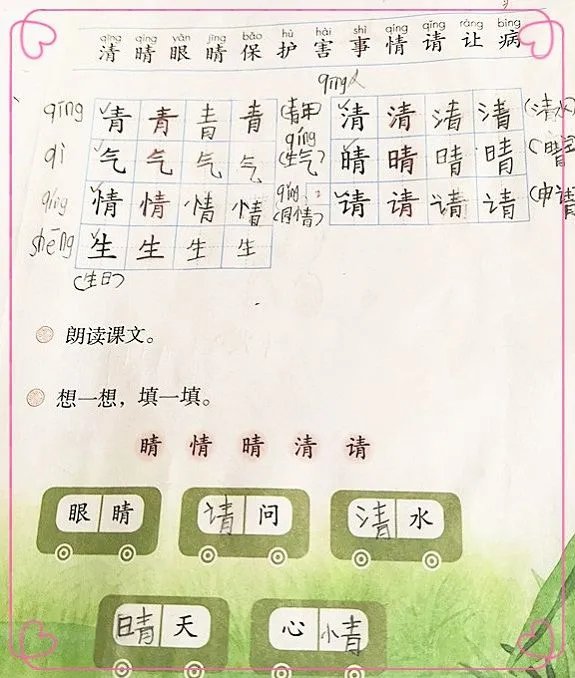 qīng qíng yǎn jīng bǎo hù hài shì qíng qǐng ràng bìng
清 晴 眼 睛 保 护 害 事 情 请 让 病
qīng 青 青 青 青 清 清 清 清 (清水)
qì 气 气 气 气 (生气) qíng 晴 晴 晴 晴
qíng 情 情 情 情 (同情) 请 请 请 请 (申请
shēng 生 生 生 生
(生日)
朗读课文。
想一想，填一填。
睛 情 晴 清 请
眼 睛 请 问 清 水
晴 天 心 情